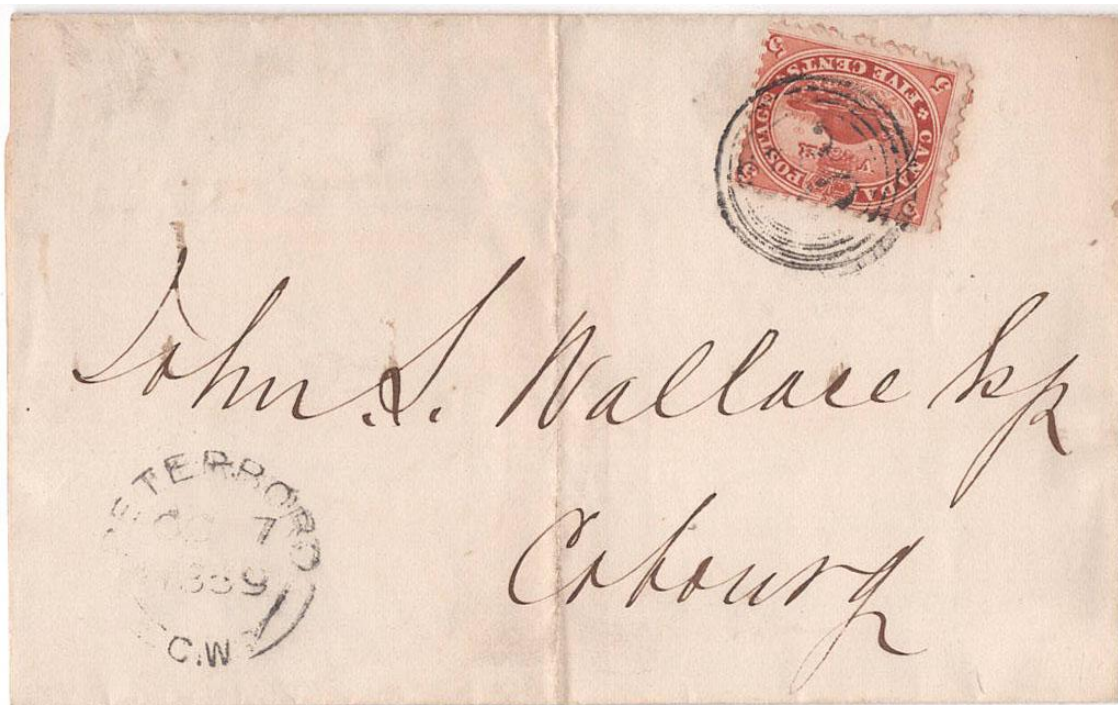 CANADA POSTAGE FIVE CENTS
5 5 5 5
John. S. Wallace Esqr
Cobourg
PETERBORO
OC 7
1859
C.W